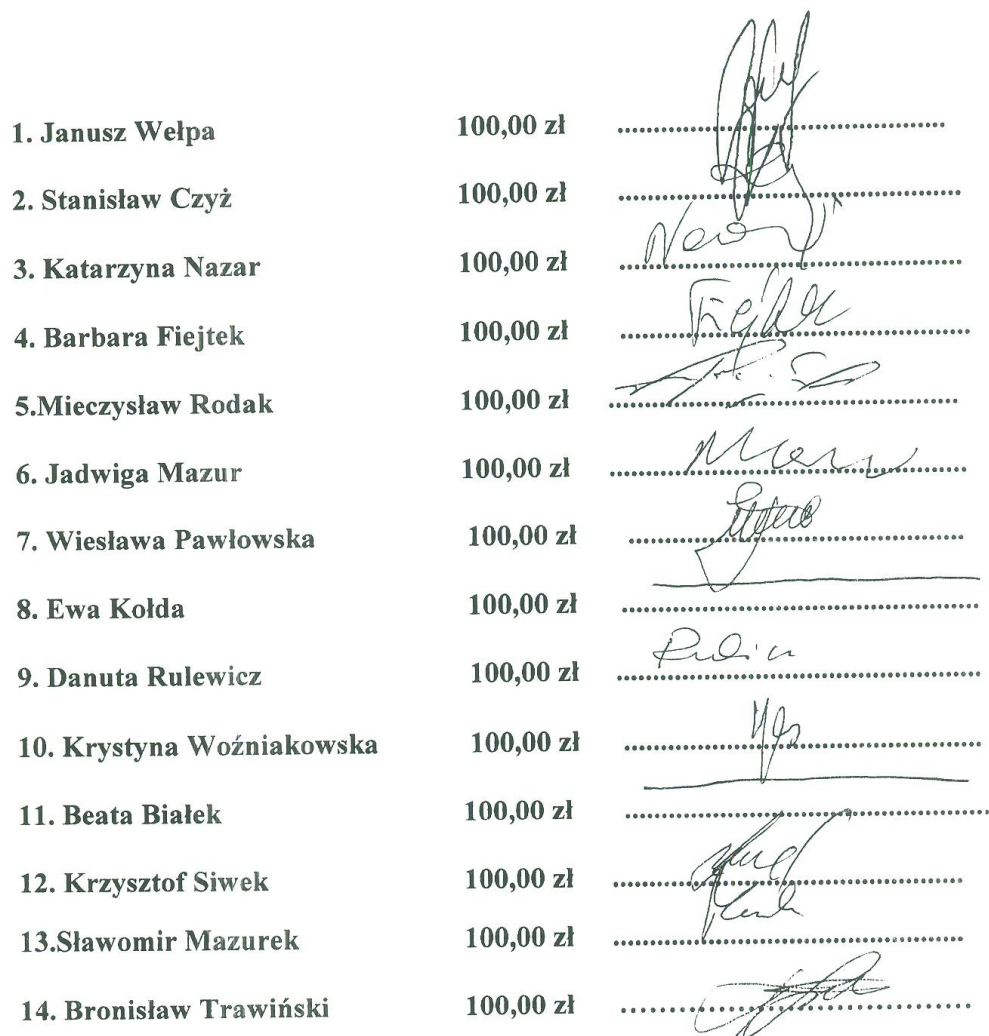 1. Janusz Wełpa 100,00 zł ........................................
2. Stanisław Czyż 100,00 zł ........................................
3. Katarzyna Nazar 100,00 zł ........................................
4. Barbara Fiejtek 100,00 zł ........................................
5.Mieczysław Rodak 100,00 zł ........................................
6. Jadwiga Mazur 100,00 zł ........................................
7. Wiesława Pawłowska 100,00 zł ........................................
8. Ewa Kołda 100,00 zł ........................................
9. Danuta Rulewicz 100,00 zł ........................................
10. Krystyna Woźniakowska 100,00 zł ........................................
11. Beata Białek 100,00 zł ........................................
12. Krzysztof Siwek 100,00 zł ........................................
13.Sławomir Mazurek 100,00 zł ........................................
14. Bronisław Trawiński 100,00 zł ........................................